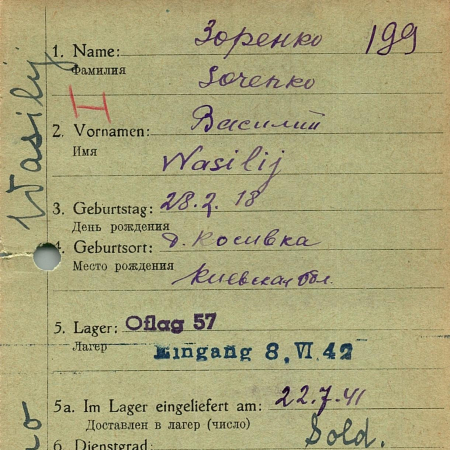 1. Name: Зоренко 199
Фамилия Sorenko
2. Vornamen: Василий
Имя Wasilij
3. Geburtstag: 28.2.18
День рождения
4. Geburtsort: д. Косивка
Место рождения Киевская обл.
5. Lager: Oflag 57
Лагерь Eingang 8. VI. 42
5a. Im Lager eingeliefert am: 22.7.41
Доставлен в лагерь (число)
6. Dienstgrad: Sold.
Wasilij